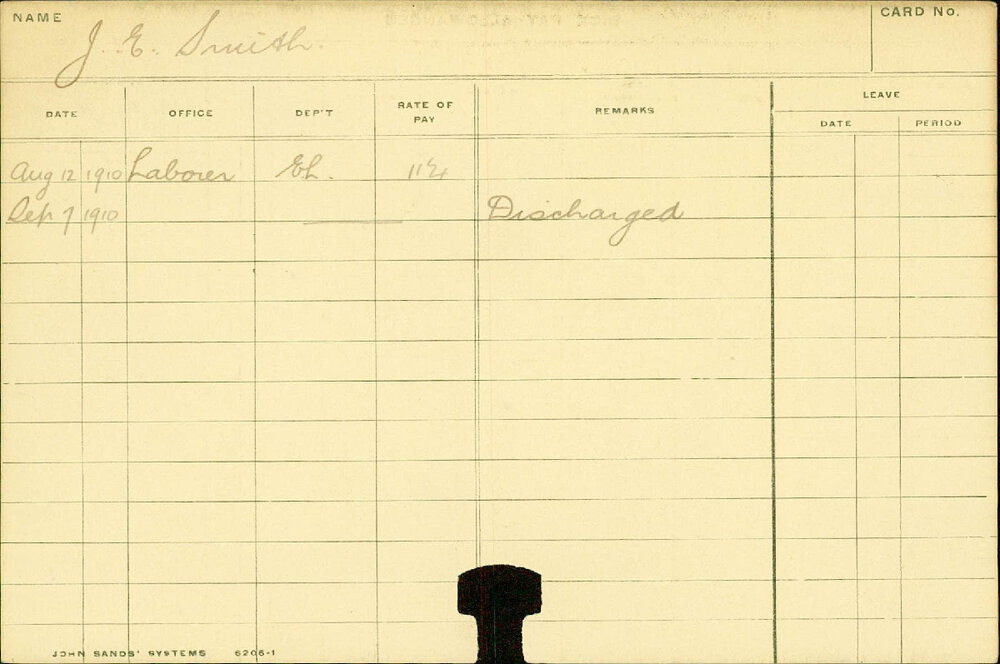 NAME J. E. Smith. CARD No.
DATE OFFICE DEP'T RATE OF PAY REMARKS LEAVE
DATE PERIOD
Aug 12 1910 Laborer Eh.
Sep 7 1910 Discharged
JOHN SANDS' SYSTEMS 6206-1